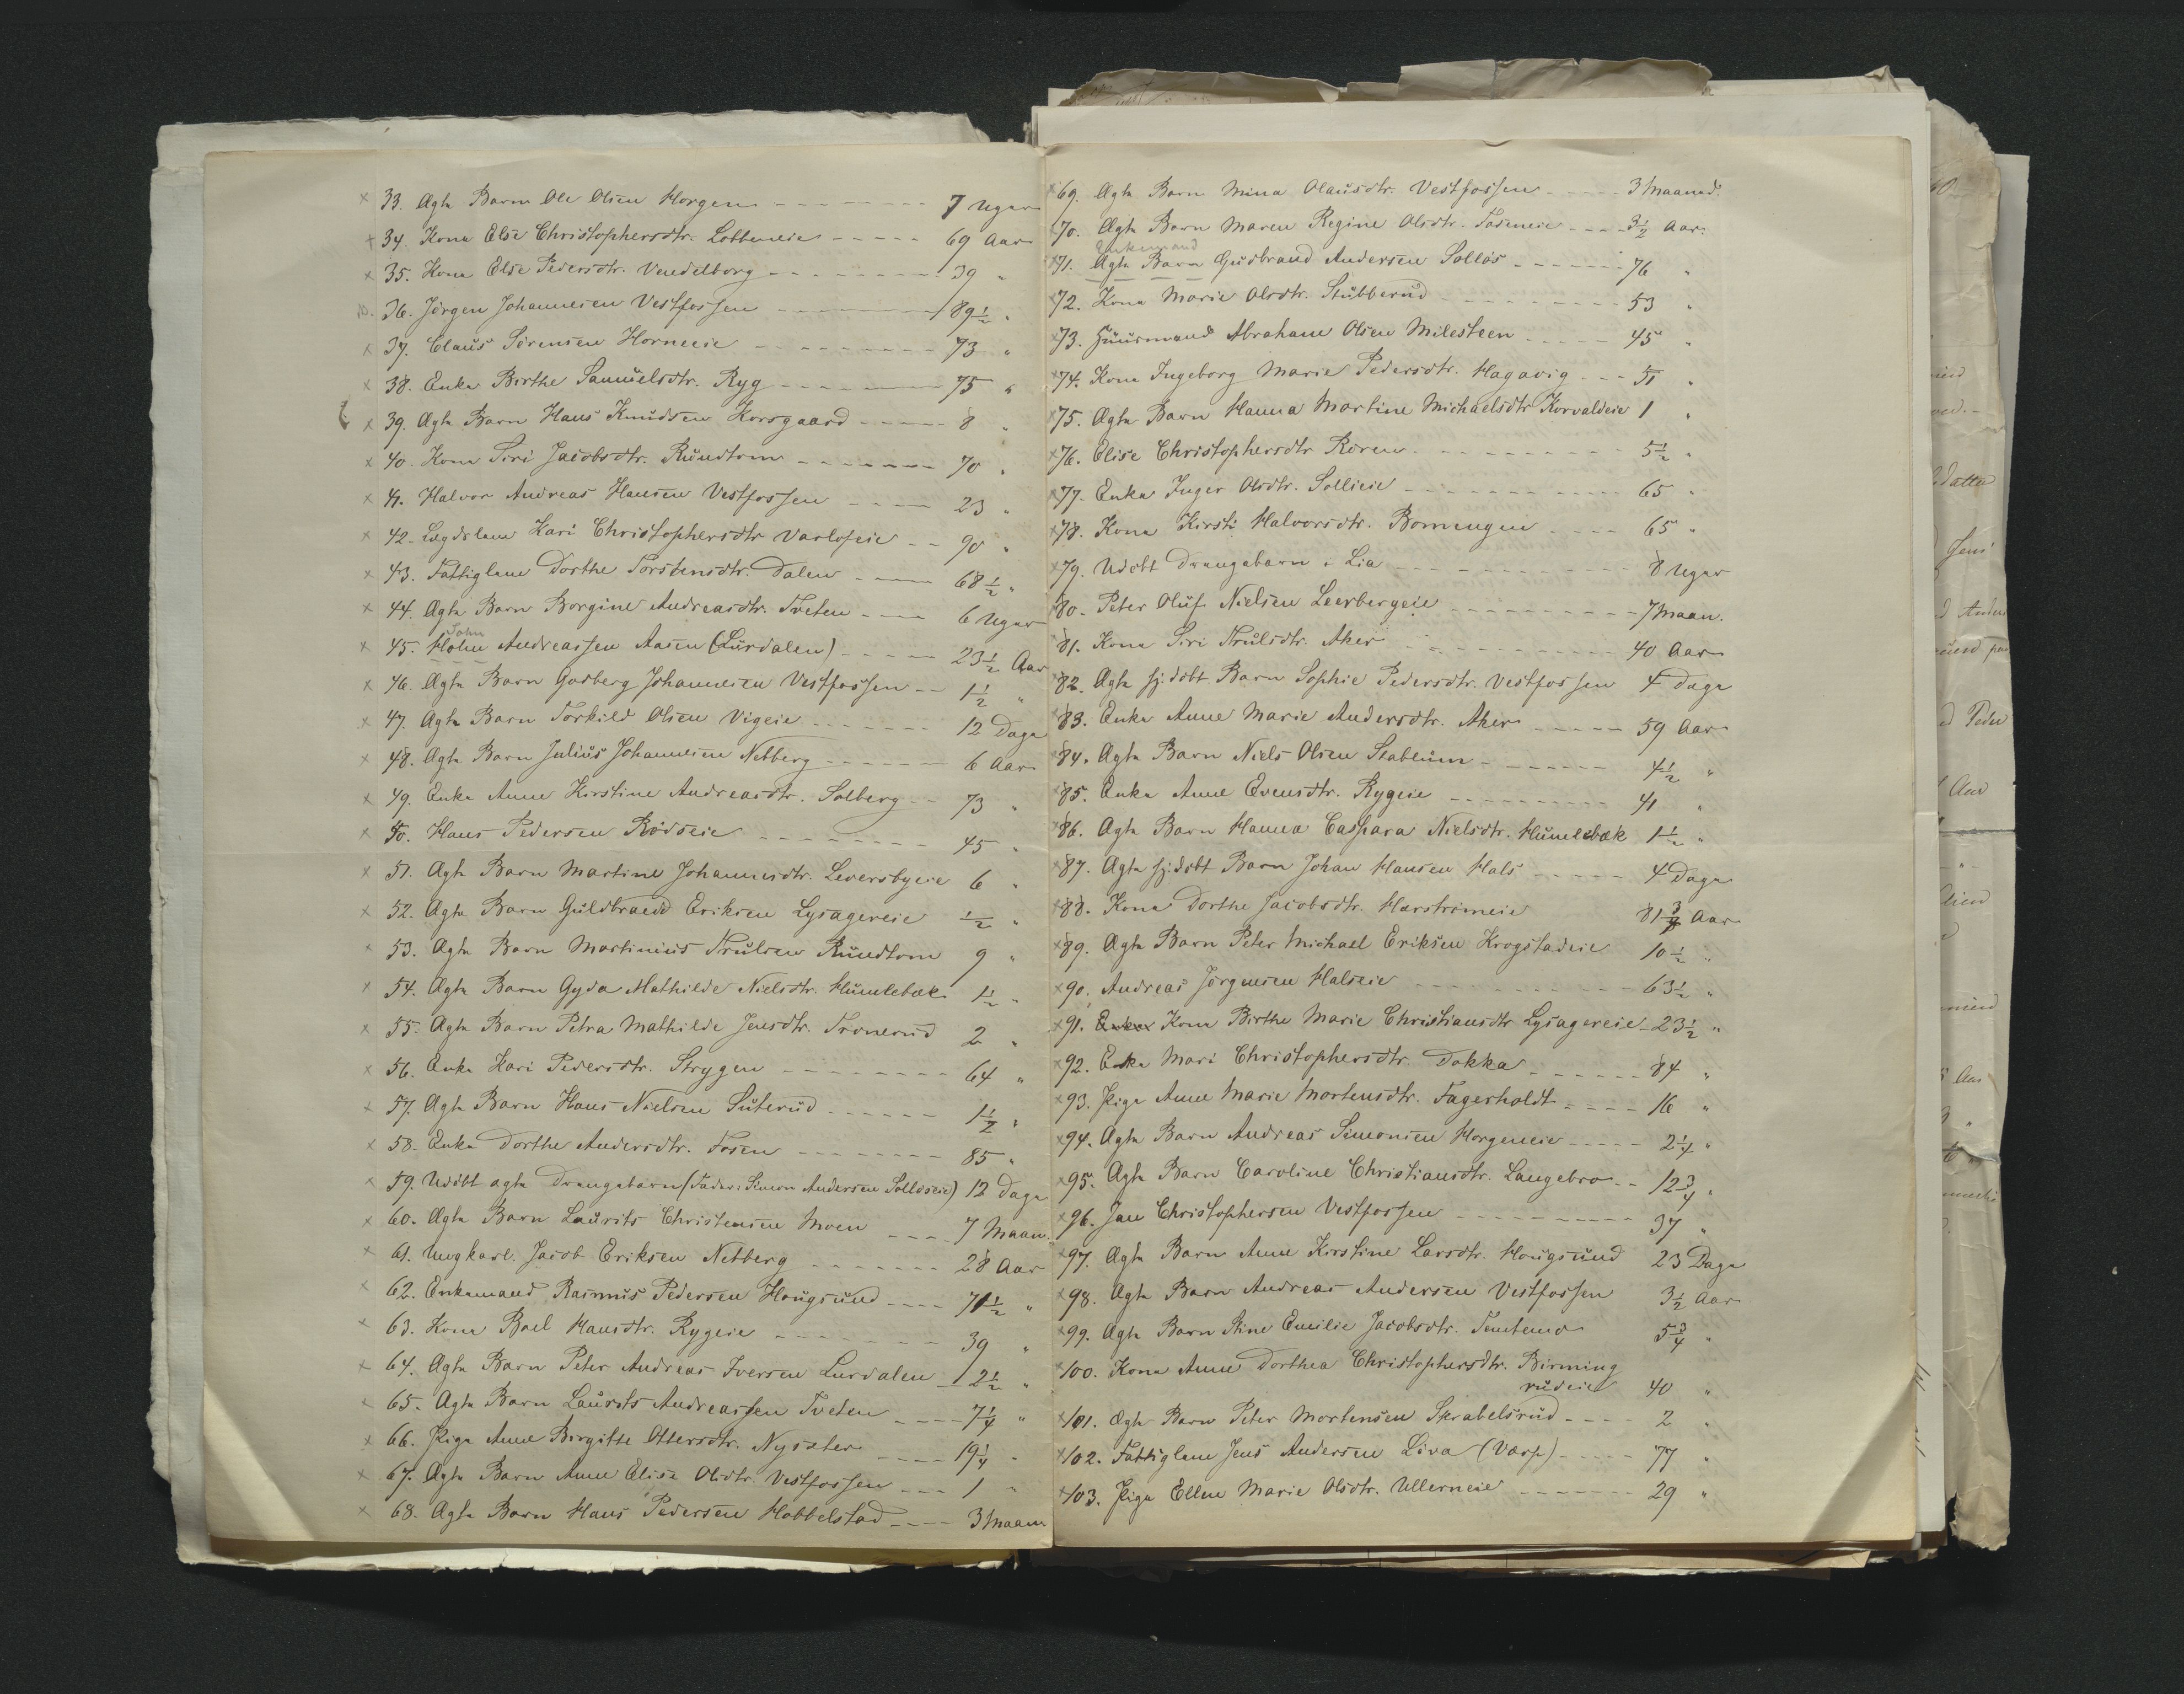 33. Ægte Barn Ole Olsen Horgen 7 Uger
34. Kone Else Christophersdtr. Lobbeneie 69 Aar
35. Kone Else Pedersdtr. Vendelborg 39 "
36. Jörgen Johannesen Vestfossen 89 1/2 "
37. Claus Sörensen Horneeie 73 "
38. Enke Berthe Samuelsdtr. Ryg 75 "
39. Ægte Barn Hans Knudsen Korsgaard 8 "
40. Kone Siri Jacobsdtr. Rundtom 70 "
41. Halvor Andreas Hansen Vestfossen 23 "
42. Lægdslem Kari Christophersdtr Varloseie 90 "
43. Fattiglem Dorthe Torstensdtr. Dalen 68 1/2 "
44. Ægte Barn Borgine Andreasdtr. Tveten 6 Uger
John
45. Holm Andreassen Aasen (Lurdalen) 23 1/2 Aar
46. Ægte Barn Godberg Johannesen Vestfossen 1 1/2 "
47. Ægte Barn Torkild Olsen Vigeie 12 Dage
48. Ægte Barn Julius Johannesen Netberg 6 Aar
49. Enke Anne Kirstine Andreasdtr. Solberg 73 "
50. Hans Pedersen Rödseie 45 "
51. Ægte Barn Martine Johannesdtr. Leversbyeie 6 "
52. Ægte Barn Guldbrand Eriksen Lysagereie 1/2 "
53. Ægte Barn Martinius Trulsen Rundtom 9 "
54. Ægte Barn Gyda Mathilde Nielsdtr. Humlebæk 1 1/2 "
55. Ægte Barn Petra Mathilde Jensdtr. Tronerud 2 "
56. Enke Kari Pedersdtr. Strygen 64 "
57. Ægte Barn Hans Nielsen Suterud 1 1/2 "
58. Enke Dorthe Andersdtr. Fosen 85 "
59. Udöbt ægte Drengebarn (Fader: Simon Andersen Sollöseie) 12 Dage
60. Ægte Barn Laurits Christensen Moen 7 Maan.
61. Ungkarl. Jacob Eriksen Netberg 28 Aar
62. Enkemand Rasmus Pedersen Hougsund 71 1/2 "
63. Kone Boel Hansdtr. Rygeie 39 "
64. Ægte Barn Peter Andreas Iversen Lurdalen 2 1/2 "
65. Ægte Barn Laurits Andreassen Tveten 7 1/4 "
66. Pige Anne Birgitte Ottersdtr. Nysæter 19 1/4 "
67. Ægte Barn Anne Elise Olsdtr. Vestfossen 1 "
68. Ægte Barn Hans Pedersen Hobbelstad 3 Maan
69. Ægte Barn Mina Olausdtr. Vestfossen 3 Maaned.
70. Ægte Barn Maren Regine Olsdtr. Foseneie 3 1/2 Aar.
Enkemand
71. Ægte Barn Gudbrand Andersen Sollös 76 "
72. Kone Marie Olsdtr. Stubberud 53 "
73. Huusmand Abraham Olsen Milesteen 45 "
74. Kone Ingeborg Marie Pedersdtr. Hagavig 51 "
75. Ægte Barn Hanna Martine Michaelsdtr Korvaldeie 1 "
76. Elise Christophersdtr Roren 5 1/2 "
77. Enke Inger Olsdtr. Sollieie 65 "
78. Kone Kirsti Halvorsdtr. Bommengen 65 "
79. Udöbt Drengebarn i Lia 8 Uger
80. Peter Oluf Nielsen Leerbergeie 7 Maan.
81. Kone Siri Trulsdtr. Aker 40 Aar
82. Ægte hj. döbt Barn Sophie Pedersdtr. Vestfossen 4 Dage
83. Enke Anne Marie Andersdtr. Aker 59 Aar
84. Ægte Barn Niels Olsen Stablum 4 1/2 "
85. Enke Anne Evensdtr. Rygeie 41 "
86. Ægte Barn Hanna Caspara Nielsdtr. Humlebæk 1 1/2 "
87. Ægte hj. döbt Barn Johan Hansen Hals 4 Dage
88. Kone Dorthe Jacobsdtr. Hærströmeie 81 3/4 Aar
89. Ægte Barn Peter Michael Eriksen Krogstadeie 10 1/2 "
90. Andreas Jörgensen Halseie 63 1/2 "
91. Enke Kone Birthe Marie Christiansdtr Lysagereie 23 1/2 "
92. Enke Mari Christophersdtr. Dokka 84 "
93. Pige Anne Marie Mortensdtr. Fagerholdt 16 "
94. Ægte Barn Andreas Simonsen Horgeneie 2 1/4 "
95. Ægte Barn Caroline Christiansdtr. Langebro 12 3/4 "
96. Jan Christophersen Vestfossen 37 "
97. Ægte Barn Anne Kirstine Larsdtr. Hougsund 23 Dage
98. Ægte Barn Andreas Andersen Vestfossen 3 1/2 Aar
99. Ægte Barn Stine Emilie Jacobsdtr. Temtemo 5 3/4 "
100. Kone Anne Dorthea Christophersdtr. Birming
rudeie 40 "
101. Ægte Barn Peter Mortensen Skrabelsrud 2 "
102. Fattiglem Jens Andersen Liva (Værp) 77 "
103. Pige Ellen Marie Olsdtr. Ullerneie 29 "